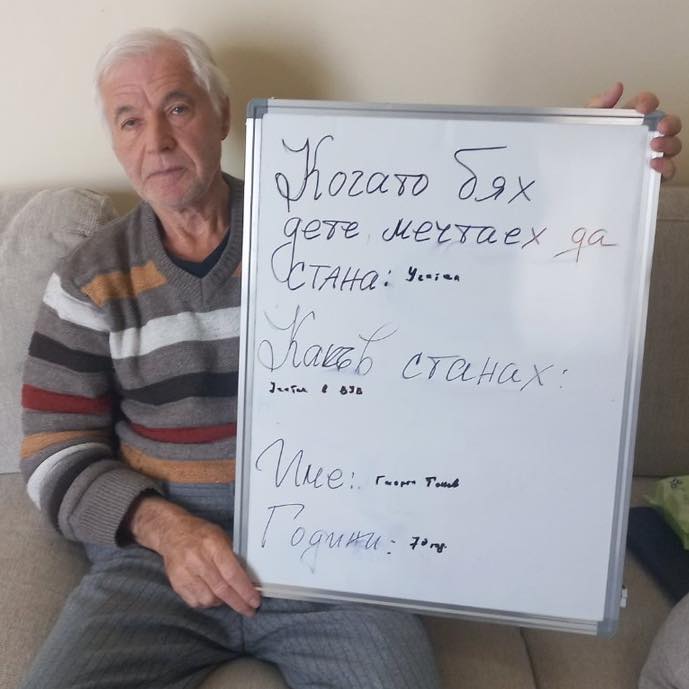 Когато бях
дете мечтаех да
стана: Учител
Какъв стана​х:
Учител в ВУЗ
Име: Георги Томов
Години: 70 год.